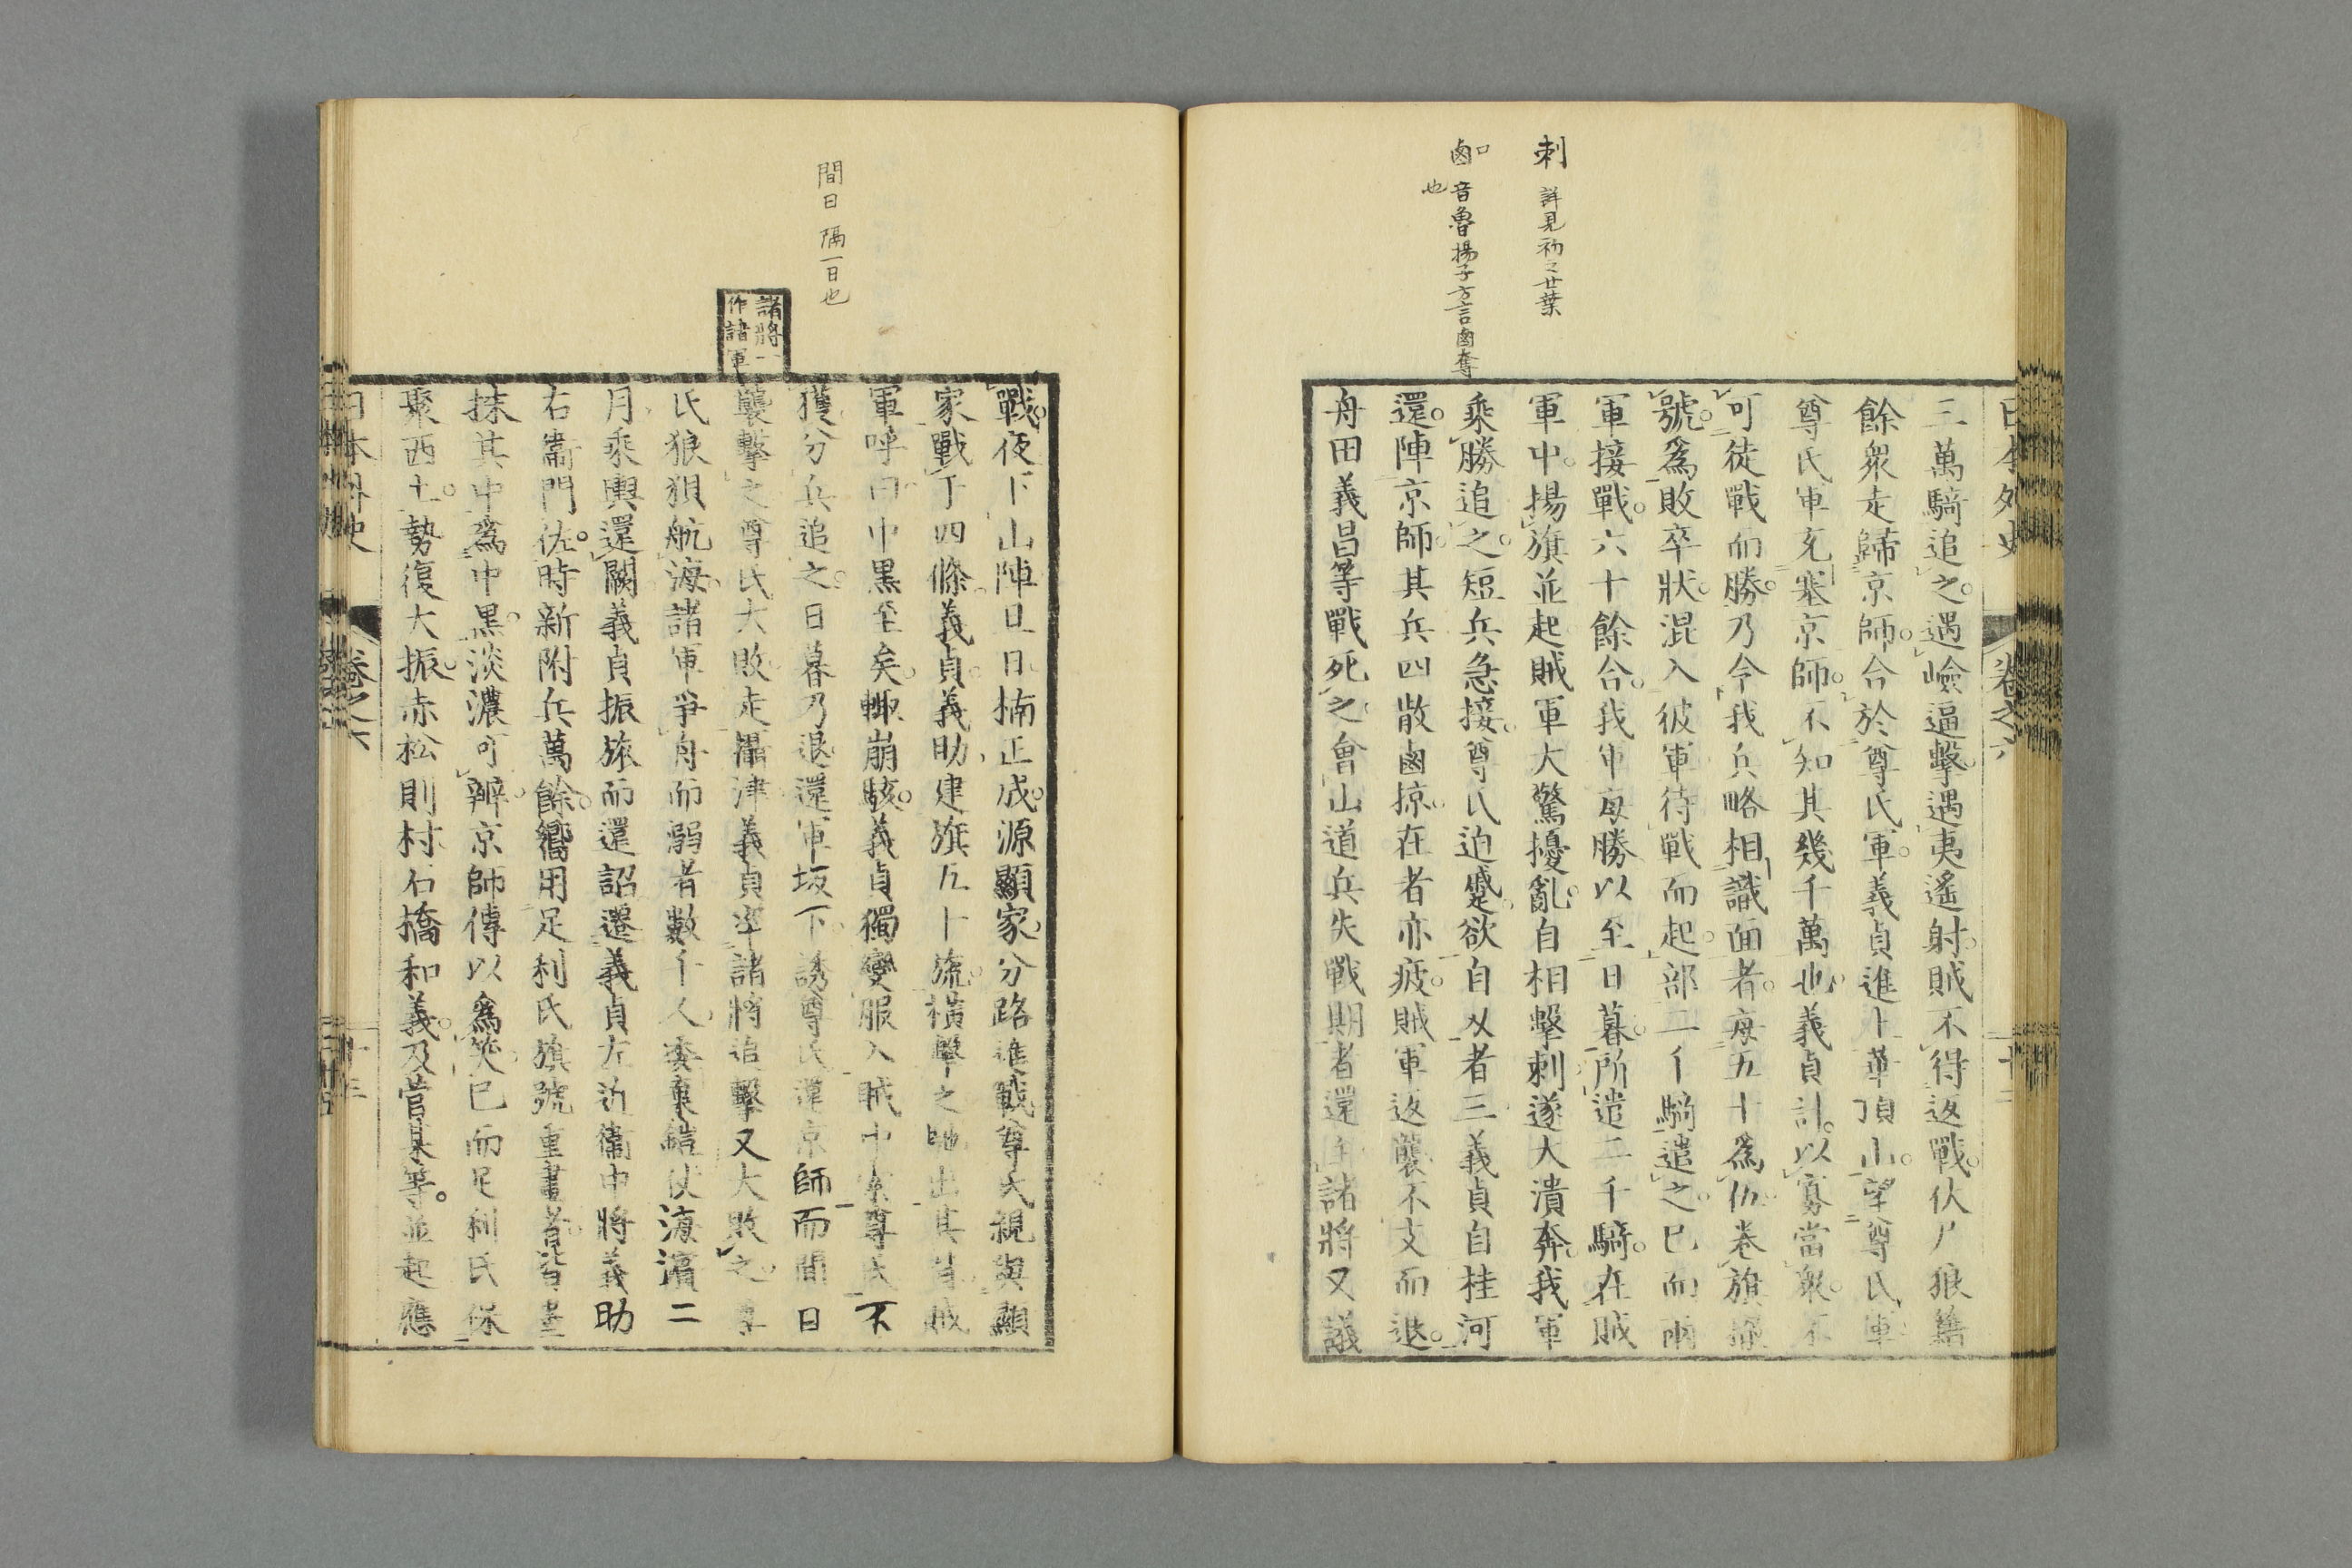 刺 詳見初之廿葉
鹵 音魯揚子方言鹵奪
也
日本外史 卷之六
三萬騎追之遇嶮逼擊遇夷遙射賊不得返戰伏尸狼籍
餘衆走歸京師合於尊氏軍義貞進十華頂山望尊氏軍
尊氏軍充塞京師不知其幾千萬也義貞計以寡當衆不
可徒戰而勝乃令我兵略相識面者每五十爲伍卷旗
號爲敗卒狀混入彼軍待戰而起部二千騎遣之已而兩
軍接戰六十餘合我軍每勝以至日暮所遣二千騎在賊
軍中揚旗並起賊軍大驚擾亂自相擊刺遂大潰奔我軍
乘勝追之短兵急接尊氏迫蹙欲自刄者三義貞自桂河
還陣京師其兵四散鹵掠在者亦疲賊軍返襲不支而退
舟田義昌等戰死之會山道兵失戰期者還至諸將又議
間日 隔一日也
諸將一
作諸軍
戰夜下山陣旦日楠正成源顯家分路進戰尊氏親與顯
家戰于四條義貞義助建旗五十旒橫擊之馳出其背賊
軍呼曰中黑至矣輙崩駭義貞獨變服入賊中索尊氏不
獲分兵追之日暮乃退還軍坂下誘尊氏還京師而間日
襲擊之尊氏大敗走攝津義貞率諸將追擊又大敗之尊
氏狼狽航海諸軍爭舟而溺者數千人委棄鎧仗海濱二
月乘輿還闕義貞振旅而還詔遷義貞左近衞中將義助
右衞門佐時新附兵萬餘嚮用足利氏旗號重畫者皆塗
抹其中爲中黑淡濃可辨京師傳以爲笑已而足利氏保
聚西土勢復大振赤松則村石橋和義及菅某等並起應
日本外史 卷之六